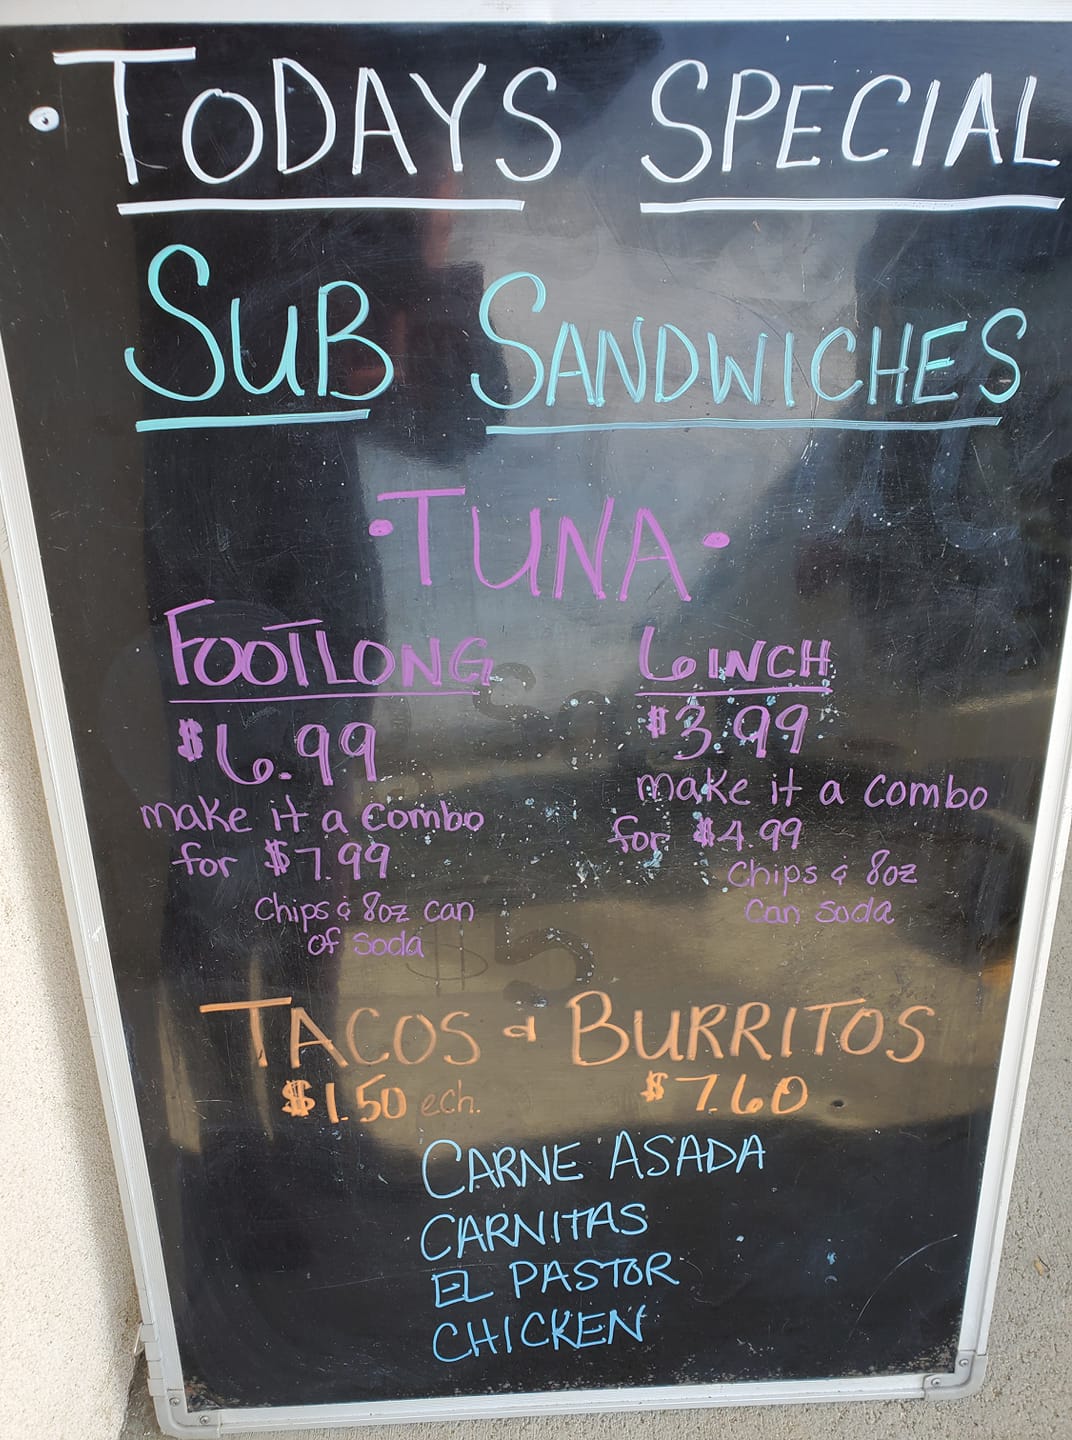 TODAYS SPECIAL
SUB SANDWICHES
• TUNA •
FOOTLONG
$6.99
make it a combo
for $7.99
Chips & 8oz can
of soda
6 INCH
$3.99
make it a combo
for $4.99
Chips & 8oz
can soda
TACOS & BURRITOS
$1.50 ech. $7.60
CARNE ASADA
CARNITAS
EL PASTOR
CHICKEN